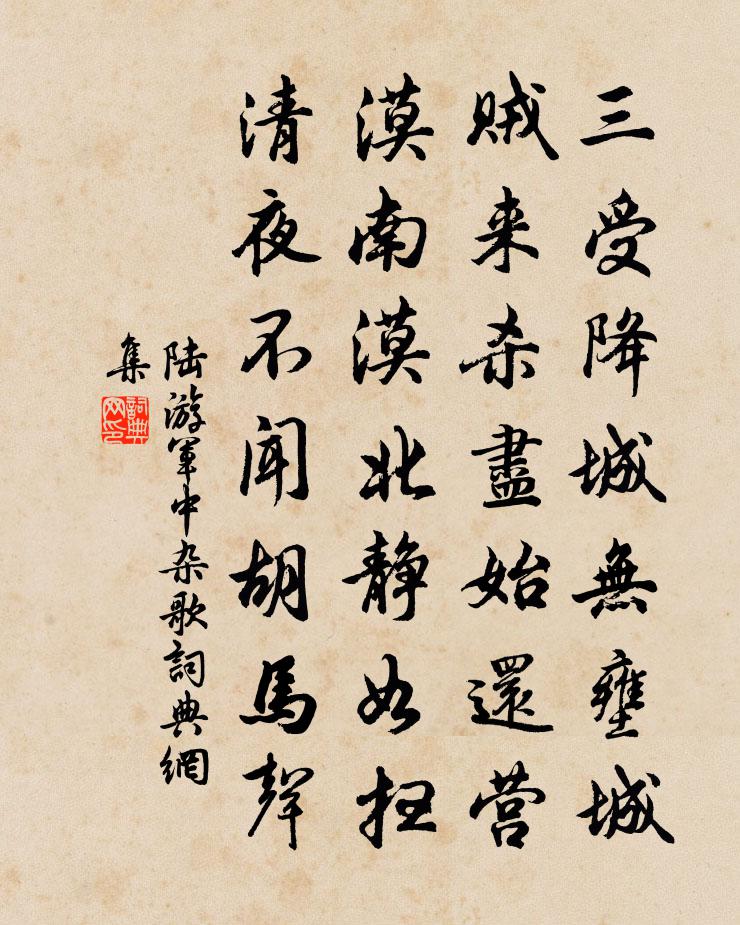 三受降城無壅城
贼来杀盡始還营
漠南漠北静如扫
清夜不闻胡馬聲
陆游军中杂歌詞典網
集
詞典
网印